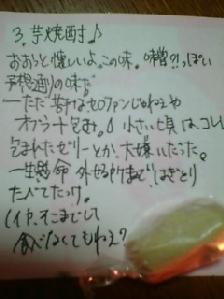 3. 芋焼酎♪
おおっと懐しいよ。この味。味噌?!っぽい
予想通りの味だ。
ーただ 苦手なセロファンじゃねえや
オブラート包み。小さい頃はコレ
包まれたゼリーとか、大嫌いだった。
一生懸命 外せる所まで はぎとり
たべてたっけ。
(イヤ、そこまでして
食べなくてもねえ?